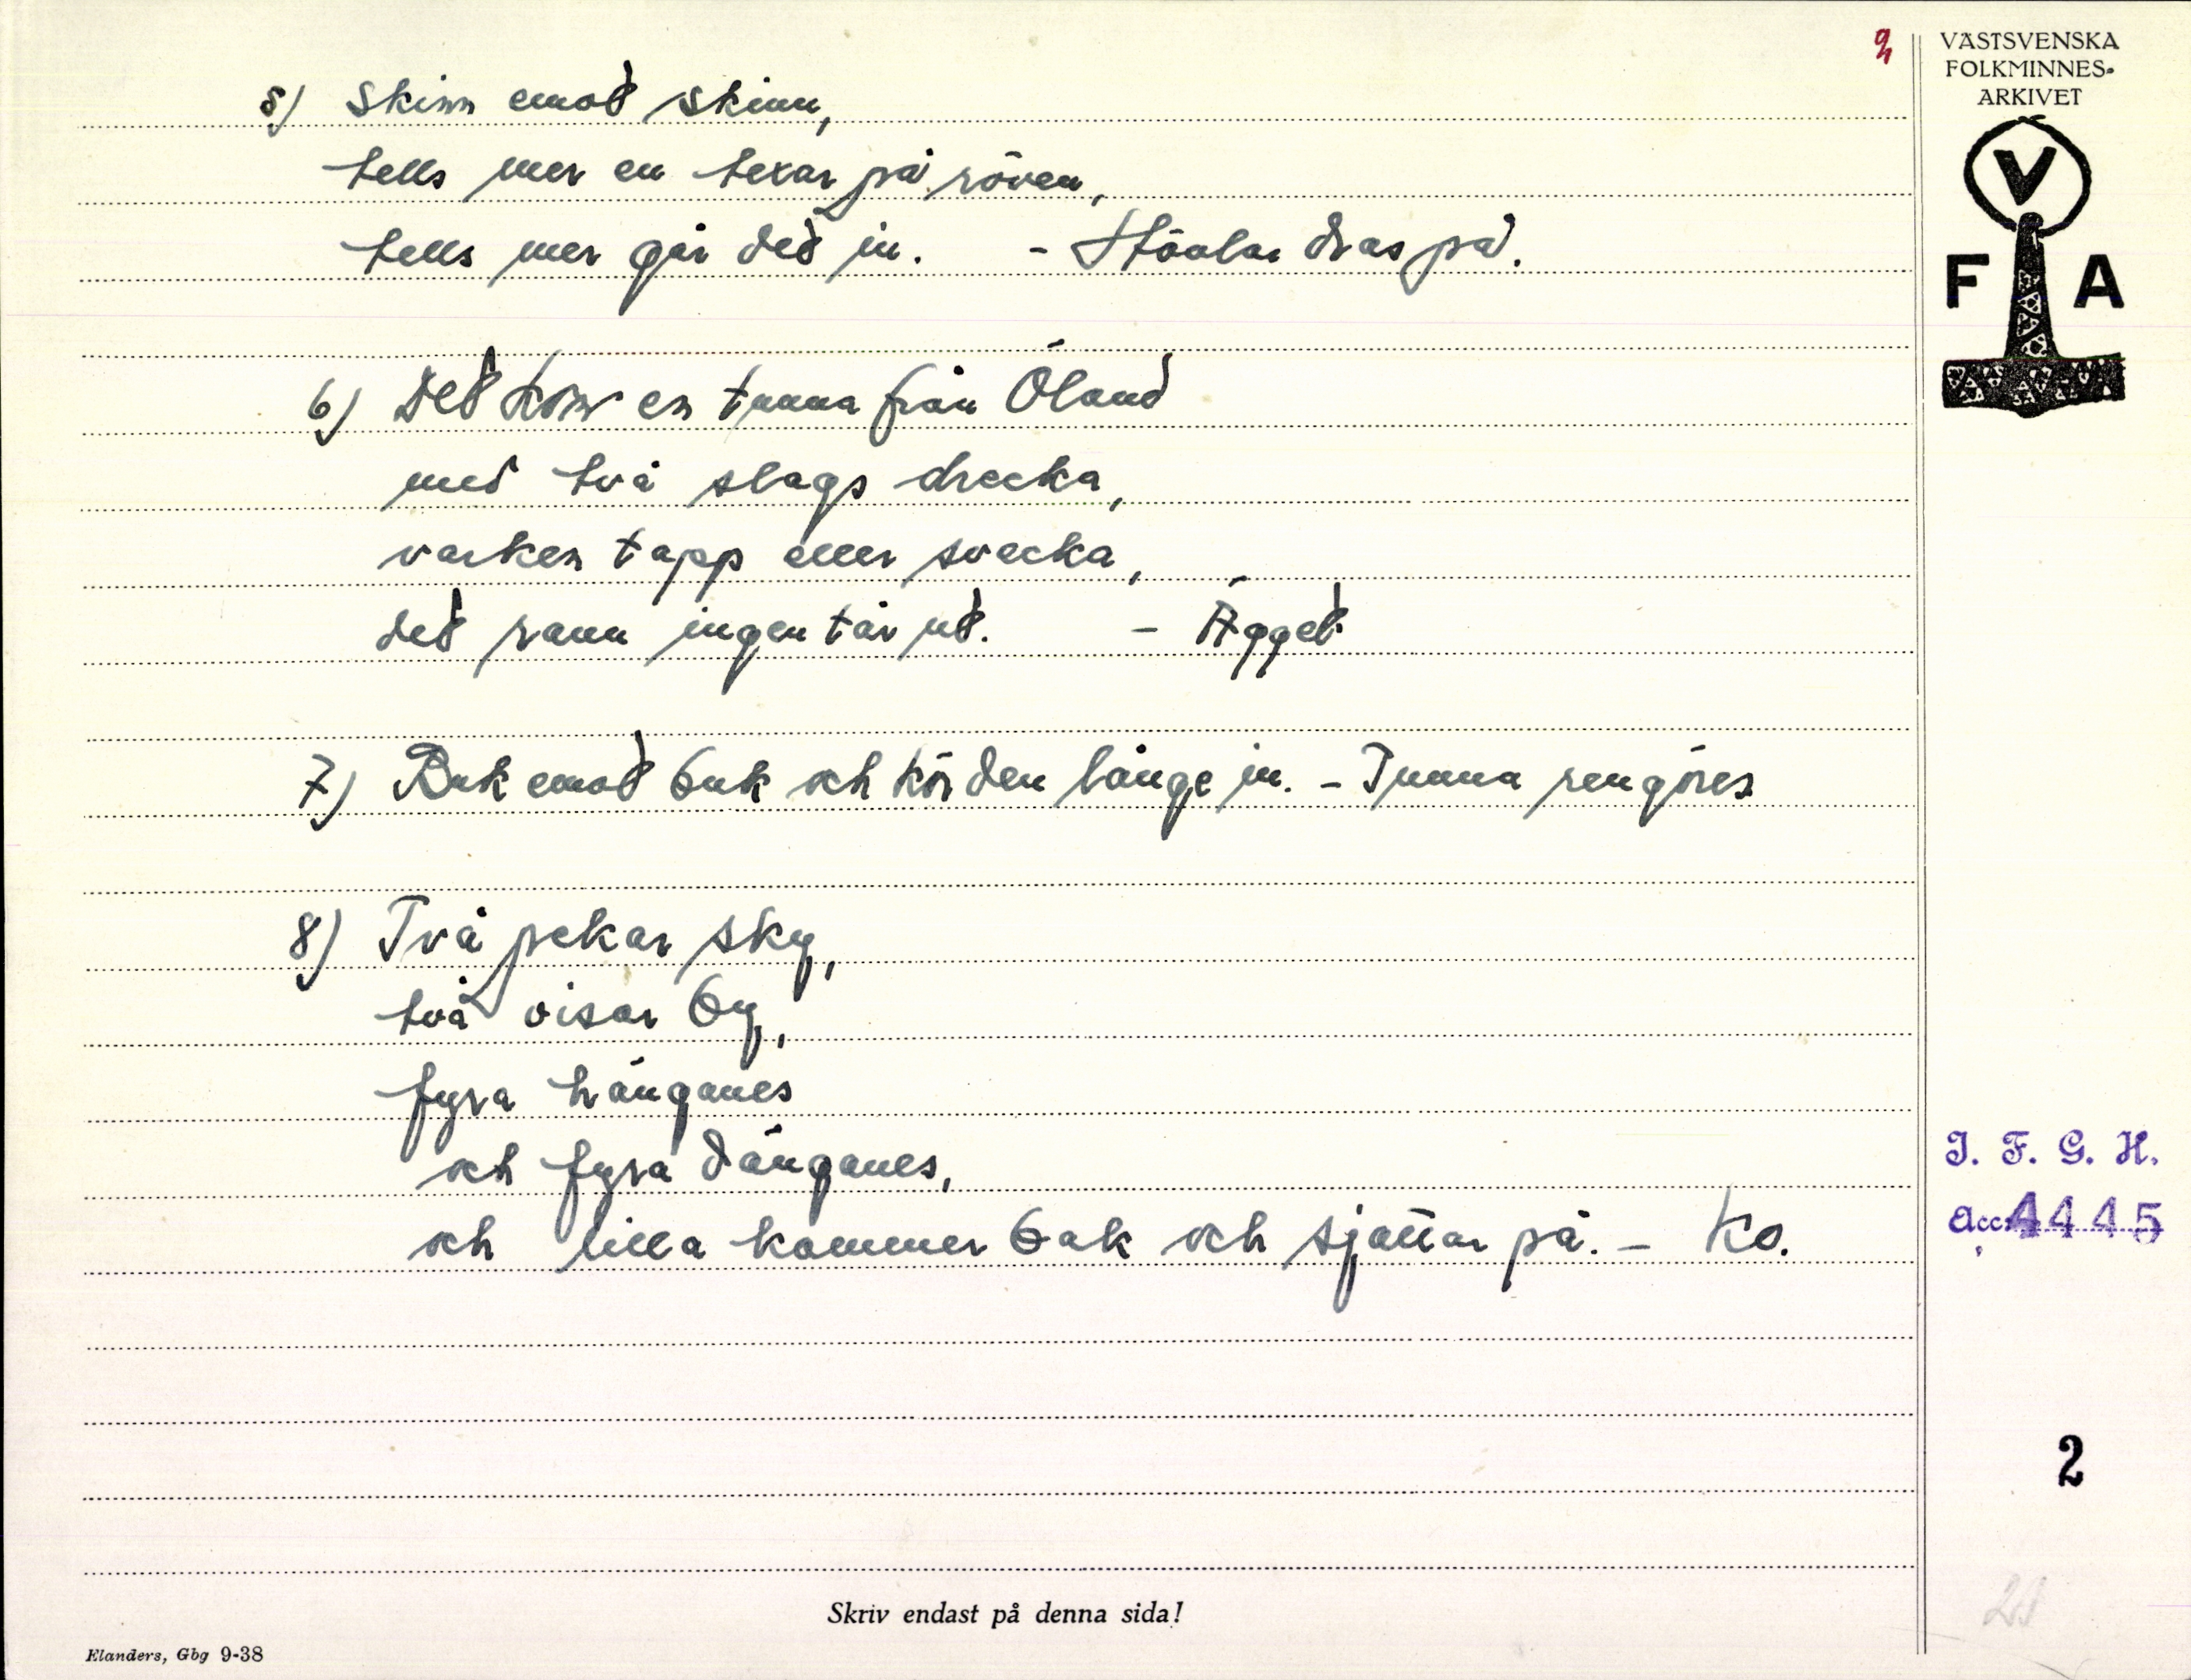 2
VÄSTSVENSKA
FOLKMINNES-
ARKIVET
V
F A
5) Skinn emot skinn,
tells mer en texar på röven,
tells mer går det in. - Stövlar dras på.
6) Det kom en tunna från Öland
med två slags drecka,
varken tapp eller svecka,
det rann ingen tår ut. - Ägget
7) Buk emot buk och kör den långe in. - Tunna rengöres
8) Två pekar sky,
två visar by,
fyra hänganes
och fyra dänganes,
och lilla kommer bak och sjattar på. - Ko.
I. F. G. H.
Acc. 4445
2
Skriv endast på denna sida!
Elanders, Gbg 9-38